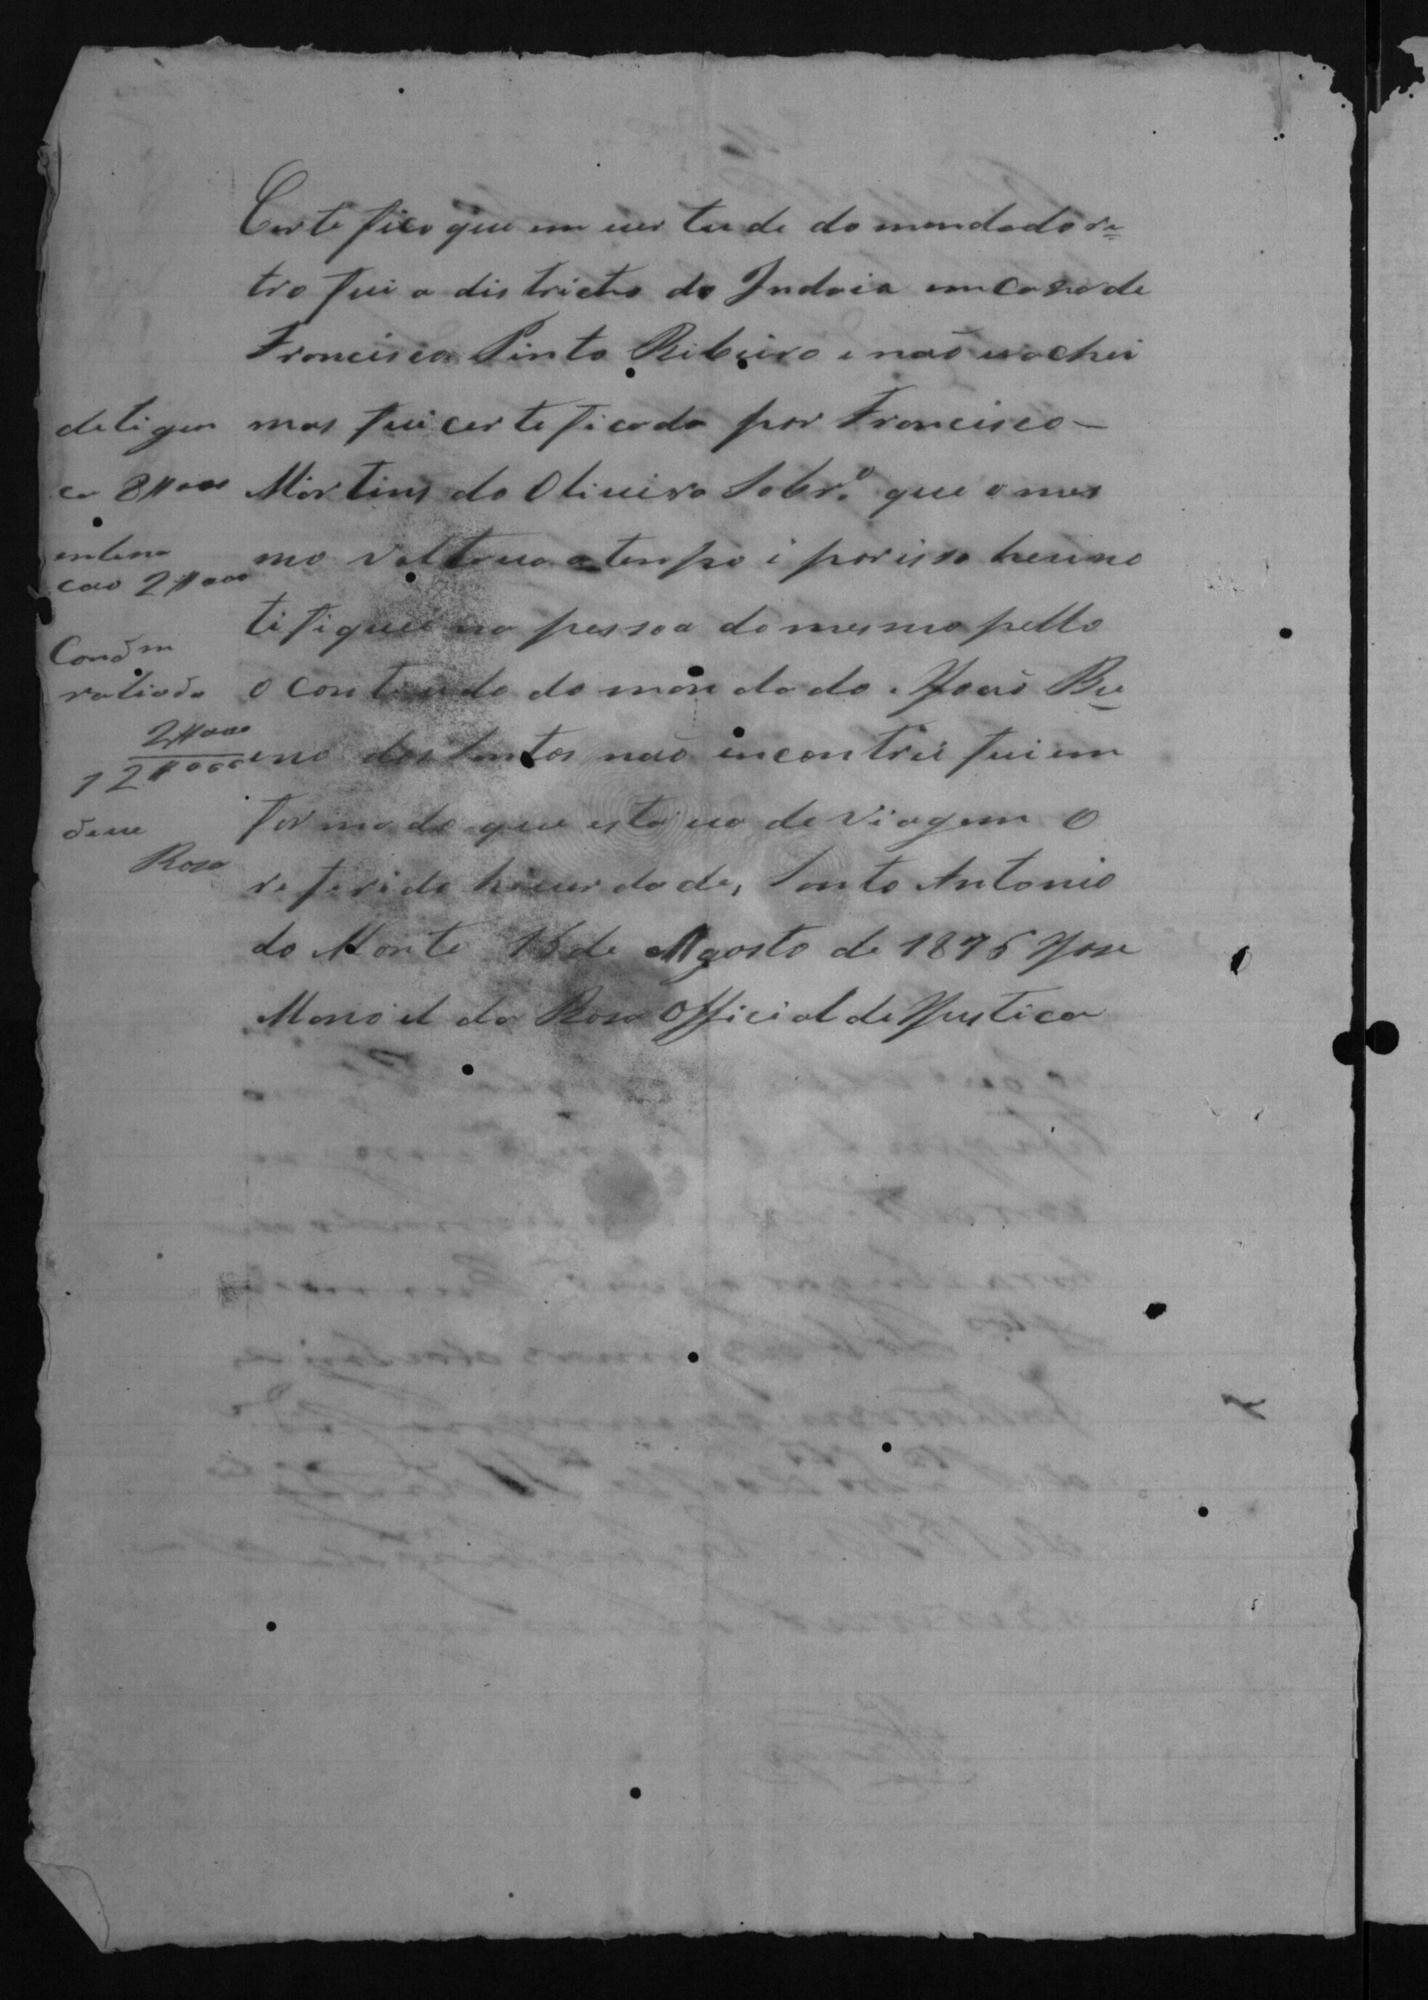 Certefico que em vertude do mandado re=
tro fui a districto do Indaia em casa de
Francisco Pinto Ribeiro e não o achei
mas fui certeficado por Francisco
Martins de Oliveira Sobr.º que o mes
mo voltava a tempo i por isso heu no
tifiquei na pessoa do mesmo pello
o conteudo do mandado. João Bu
eno dos Santos não incontrei fui em
formado que estava de viagem O
referido he verdade, Santo Antonio
do Monte 15 de Agosto de 1875 Jose
Manoel da Rosa Official de Justica
deligen
ca 8#000
entima
cão 2#000
2#000
12#000
deve
Rosa